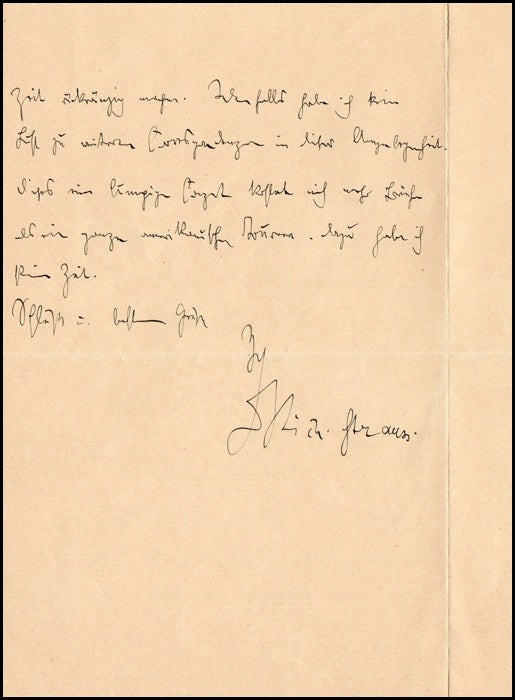 Zeit rückgängig machen. Jedenfalls habe ich keine
Lust zu weiteren Correspondenzen in dieser Angelegenheit.
Dieses eine lumpige Conzert kostet mich mehr Briefe
als eine ganze amerikanische Tournee. dazu habe ich
keine Zeit.
Schluß u. besten Gruß
Ihr
Rich. Strauss.